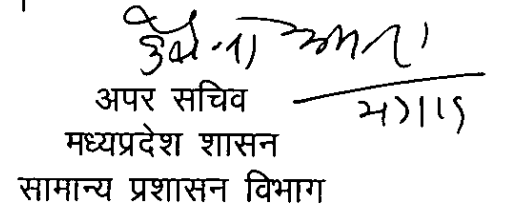 अपर सचिव
मध्यप्रदेश शासन
सामान्य प्रशासन विभाग